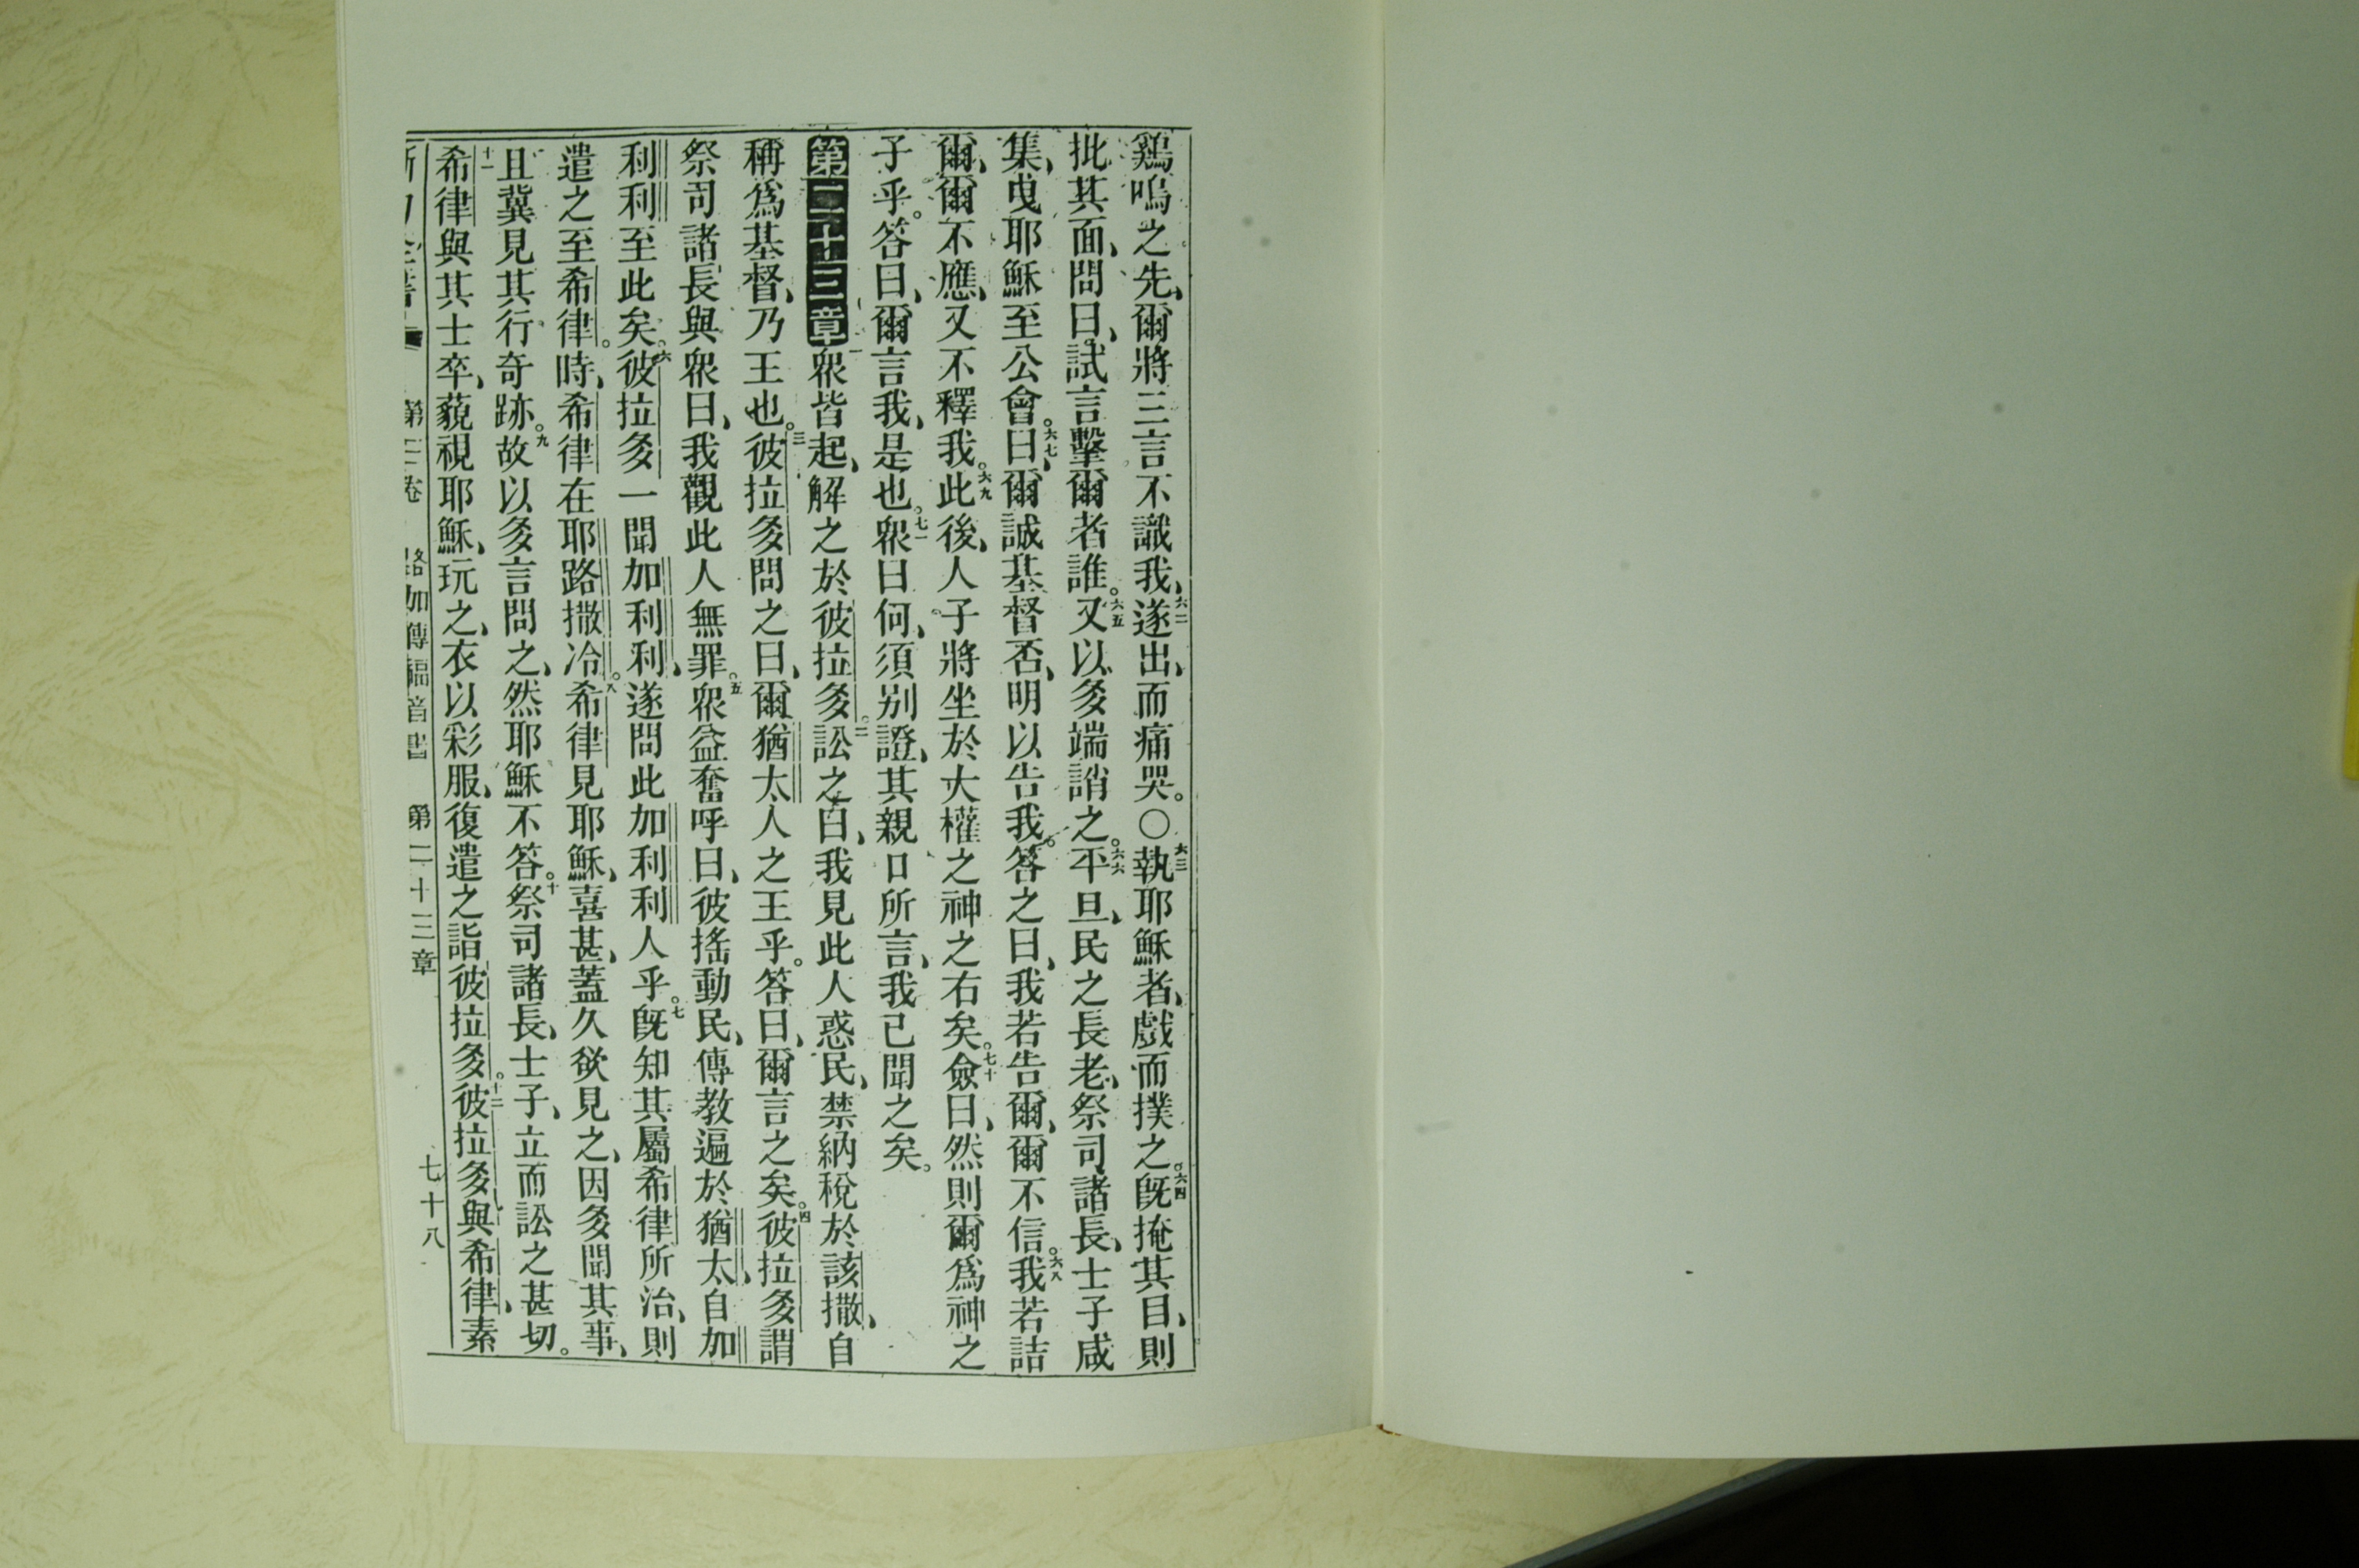 鷄鳴之先、爾將三言不識我、六二遂出、而痛哭。〇六三執耶穌者、戲而撲之。六四旣掩其目、則
批其面、問曰、試言擊爾者誰。六五又以多端誚之。六六平旦、民之長老、祭司諸長、士子咸
集、曳耶穌至公會。六七曰、爾誠基督否、明以告我。答之曰、我若告爾、爾不信。六八我若詰
爾、爾不應、又不釋我。六九此後、人子將坐於大權之神之右矣。七十僉曰、然則爾爲神之
子乎。答曰、爾言我、是也。七一衆曰何、須别證、其親口所言、我已聞之矣。
第二十三章 一衆皆起、解之於彼拉多。二訟之曰、我見此人惑民、禁納稅於該撒、自
稱爲基督、乃王也。三彼拉多問之曰、爾猶太人之王乎。答曰、爾言之矣。四彼拉多謂
祭司諸長與衆曰、我觀此人無罪。五衆益奮呼曰、彼搖動民、傳教遍於猶太、自加
利利至此矣。六彼拉多一聞加利利、遂問此加利利人乎。七旣知其屬希律所治、則
遣之至希律。時、希律在耶路撒冷。八希律見耶穌、喜甚、蓋久欲見之、因多聞其事、
且冀見其行奇跡。九故以多言問之、然耶穌不答。十祭司諸長、士子、立而訟之甚切。
十一希律與其士卒、藐視耶穌、玩之、衣以彩服、復遣之詣彼拉多。十二彼拉多與希律、素
第二卷 路加傳福音書 第二十三章 七十八